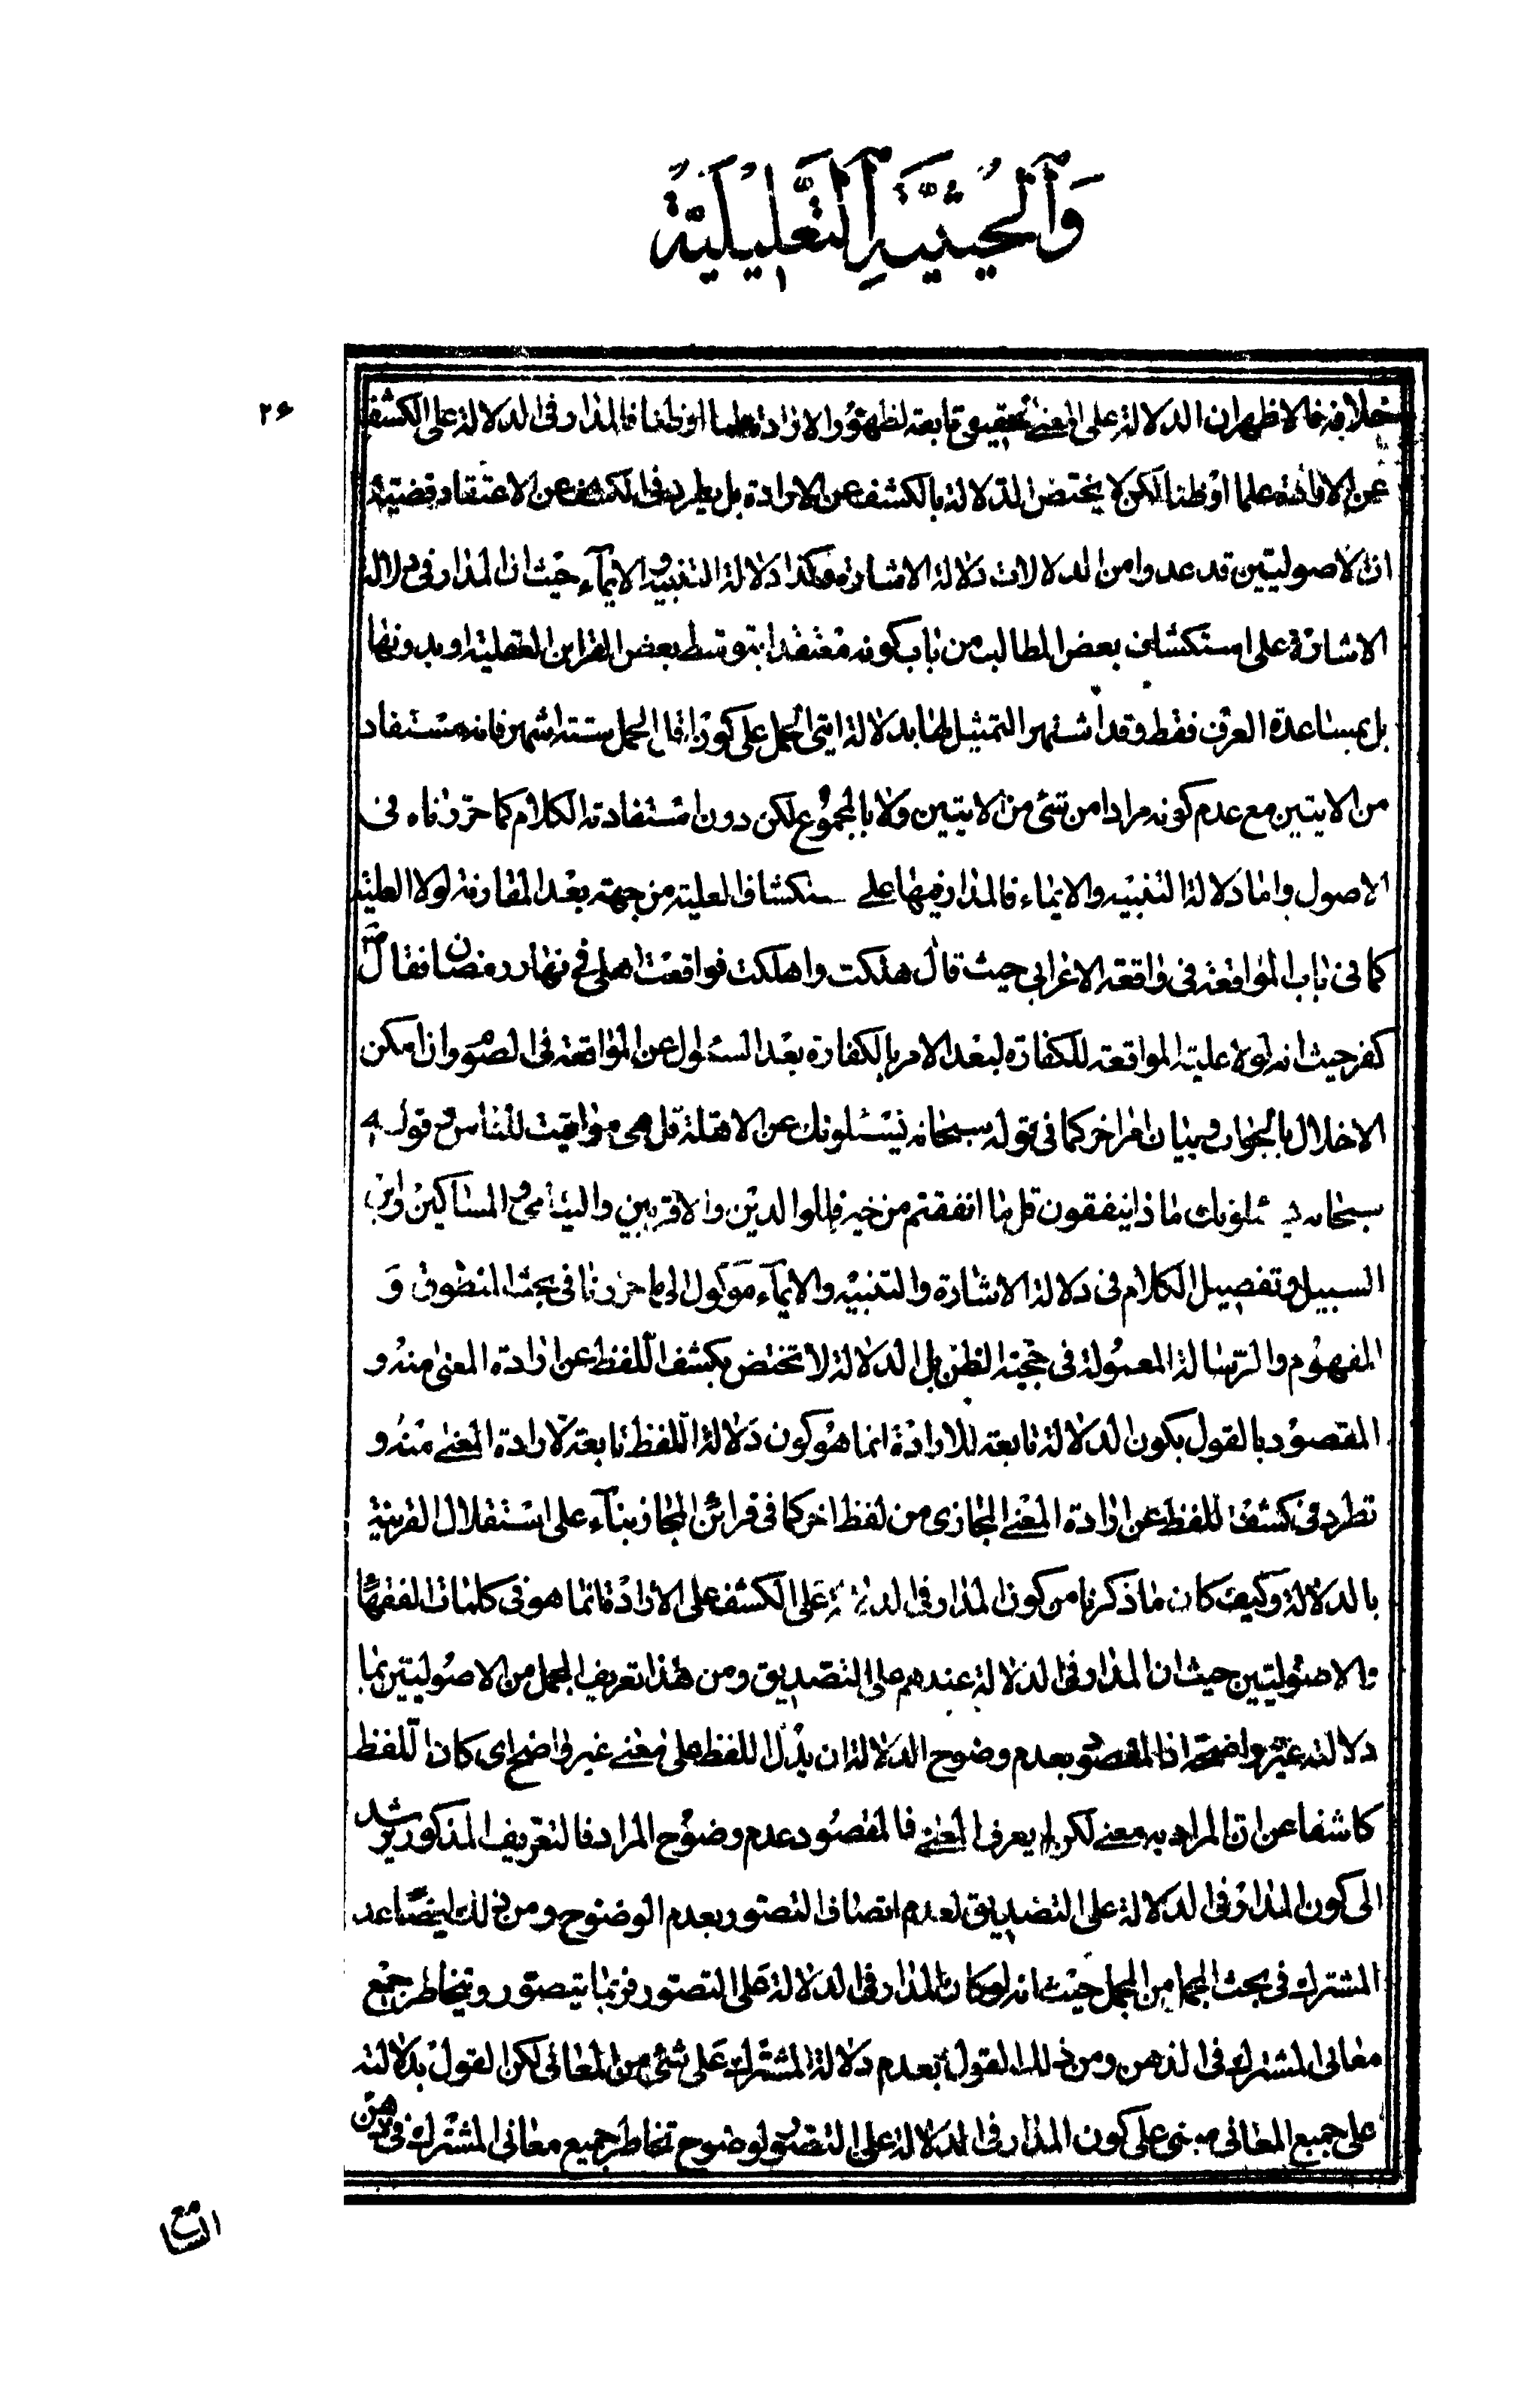 وَالْحَيْثِيَّةِ التَّعْلِيلِيَّةِ
۲۶
خلافه فالاظهر ان الدلالة على المعنى الحقيقى تابعة لظهور الارادة علما او ظنا فالمدار فى الدلالة على الكشف
عن الارادة علما او ظنا لكن لا يختص الدلالة بالكشف عن الارادة بل يطرد فى الكشف عن الاعتقاد قضيّة
ان الاصوليّين قد عدوا من الدلالات دلالة الاشارة وكذا دلالة التنبيه والايمآء حيث ان المدار فى دلالة
الاشارة على استكشاف بعض المطالب من باب كونه معتقدا بتوسط بعض القراين العقلية او بدونها
بل بمساعدة العرف فقط وقد اشتهر التمثيل لها بدلالة ايتى الحمل على كون اقل الحمل ستة اشهر فانه مستفاد
من الايتين مع عدم كونه مرادا من شئ من الايتين ولا بالمجموع لكن دون استفادته الكلام كما حررناه فى
الاصول واما دلالة التنبيه والايماء فالمدار فيها على ستكشاف العلية من جهة بعد المقارنة لولا العلية
كما فى باب المواقعة فى واقعة الاعرابى حيث قال هلكت واهلكت فواقعت اهلى فى نهار رمضان فقال ص
كفر حيث انه لولا علية المواقعة للكفارة لبعد الامر بالكفارة بعد السئوال عن المواقعة فى الصوم وان امكن
الاخلال بالجواب وبيان امر اخر كما فى قوله سبحانه يسئلونك عن الاهلة قل هى مواقيت للناس و قوله
سبحانه يسئلونك ماذا ينفقون قل ما انفقتم من خير فللوالدين والاقربين واليتامى والمساكين وابن
السبيل وتفصيل الكلام فى دلالة الاشارة والتنبيه والايمآء موكول الى ما حررنا فى بحث المنطوق وَ
المفهوم والرسالة المعمولة فى حجّية الظن بل الدلالة لا تختص بكشف اللفظ عن ارادة المعنى منه و
المقصود بالقول بكون الدلالة تابعة للارادة انما هو كون دلالة اللفظ تابعة لارادة المعنى منه و
تطرد فى كشف اللفظ عن ارادة المعنى المجازى من لفظ اخر كما فى قرائن المجاز بنآء على استقلال القرينة
بالدلالة وكيف كان ما ذكرنا من كون المدار فى الدلالة على الكشف على الارادة فانما هو فى كلمات الفقهآ
والاصوليّين حيث ان المدار فى الدلالة عندهم على التصديق ومن هذا تعريف المجمل من الاصوليّين بما
دلالته غير واضحة اذ المقصود بعدم وضوح الدلالة ان يدلّ اللفظ على معنى غير واضح اى كان اللفظ
كاشفا عن ان المراد به معنى لكن لم يعرف المعنى فالمقصود عدم وضوح المراد فالتعريف المذكور يرشد
الى كون المدار فى الدلالة على التصديق لعدم اتصاف التصور بعدم الوضوح ومن ذلك ايضا عد
المشترك فى بحث المجمل من المجمل حيث انه لو كان المدار فى الدلالة على التصور فربما يتصوّر ويتخاطر جميع
معانى المشترك فى الذهن ومن ذلك القول بعدم دلالة المشترك على شئ من المعانى لكن القول بدلالته
على جميع المعانى مبنى على كون المدار فى الدلالة على التصور لوضوح تخاطر جميع معانى المشترك فى ذهن
السامع